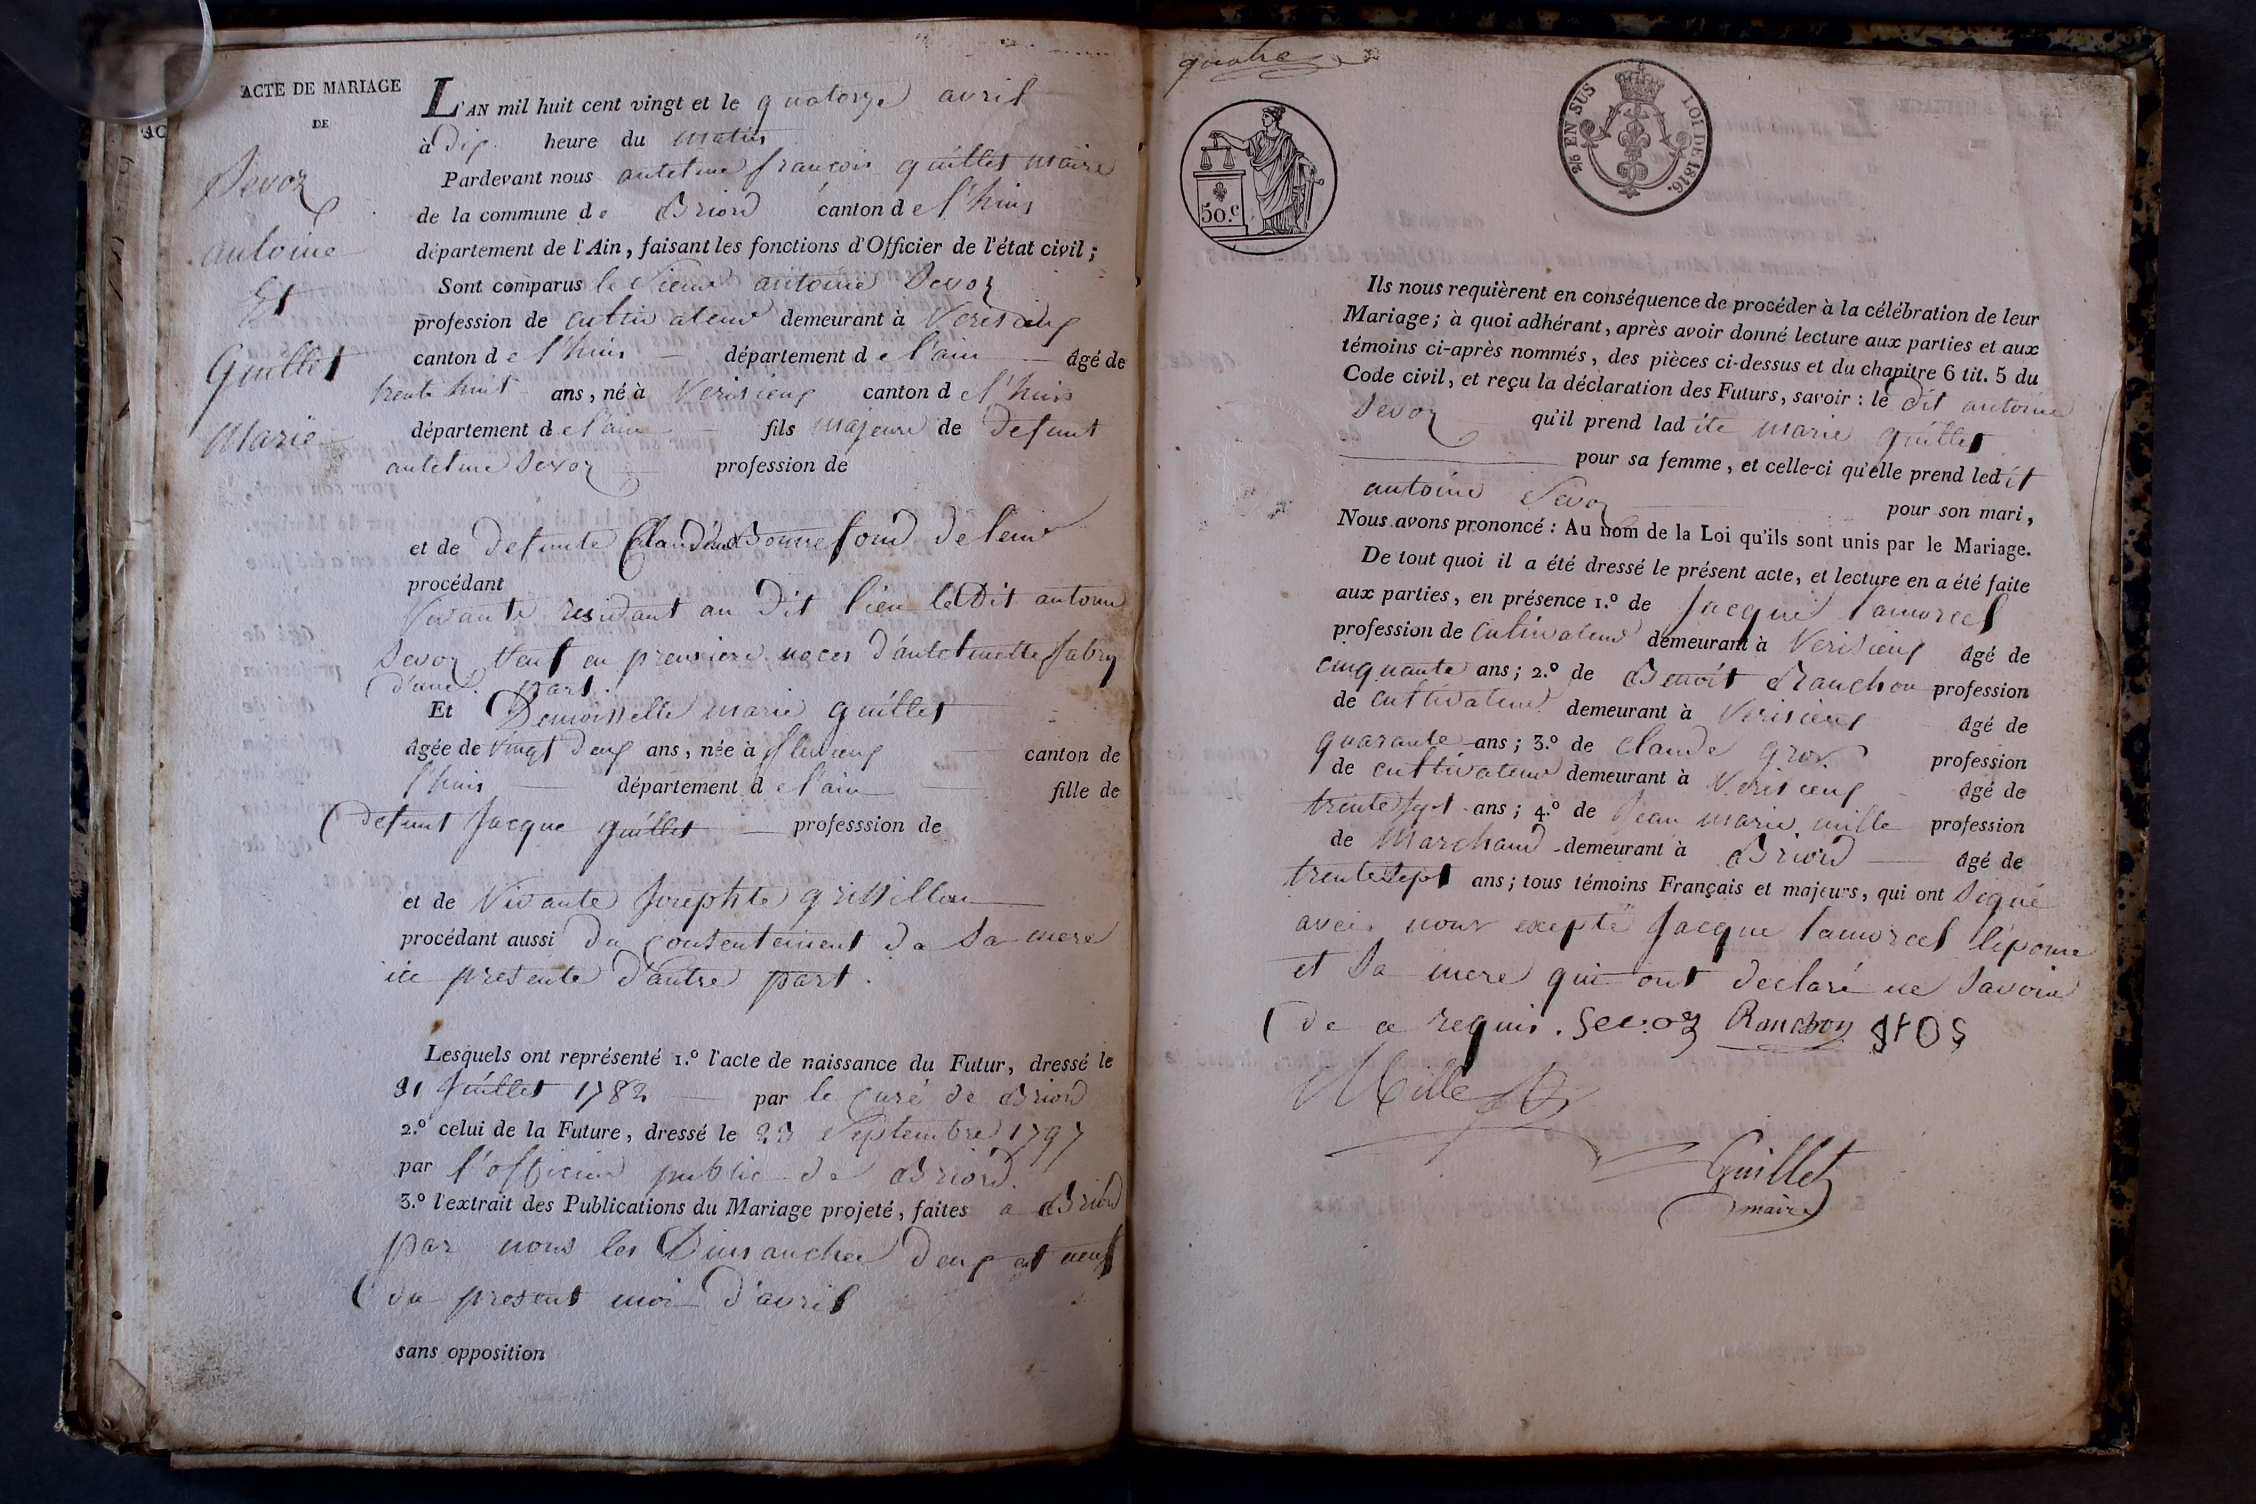 ACTE DE MARIAGE
DE
Sevoz
antoine
Et
Guillet
Marie
L'AN mil huit cent vingt et le quatorze avril
à dix heure du matin
Pardevant nous antelme françois guillet maire
de la commune de Briord canton de l'huis
département de l'Ain, faisant les fonctions d'Officier de l'état civil;
Sont comparus le Sieur antoine Sevoz
profession de cultivateur demeurant à Verisieux
canton de l'huis département de l'ain âgé de
trente huit ans, né à Verisieux canton de l'huis
département de l'ain fils majeure de defunt
antelme Sevoz profession de
et de defunte Claudine Bonnefond de leur
procédant
vivante residant au Dit lieu le Dit antoine
Sevoz veuf en premiere noces d'antelmette fabry
d'une part.
Et Demoisselle marie guillet
âgée de vingt deux ans, née à canton de
l'huis département de l'ain fille de
defunt Jacque guillet professsion de
et de Vivante Josephte grissillon
procédant aussi du consentement de sa mere
ice presente d'autre part.
Lesquels ont représenté 1.º l'acte de naissance du Futur, dressé le
31 Juillet 1782 par le curé de Briord
2.º celui de la Future, dressé le 23 Septembre 1797
par l'officier public de Briord.
3.º l'extrait des Publications du Mariage projeté, faites a Briord
par nous les Dimanches deux et neuf
du present mois d'avril
sans opposition
quatre
50.c
25 EN SUS LOI DE 1816.
Ils nous requièrent en conséquence de procéder à la célébration de leur
Mariage; à quoi adhérant, après avoir donné lecture aux parties et aux
témoins ci-après nommés, des pièces ci-dessus et du chapitre 6 tit. 5 du
Code civil, et reçu la déclaration des Futurs, savoir: le dit antoine
Sevoz qu'il prend ladite marie guillet
pour sa femme, et celle-ci qu'elle prend ledit
antoine Sevoz pour son mari,
Nous avons prononcé: Au nom de la Loi qu'ils sont unis par le Mariage.
De tout quoi il a été dressé le présent acte, et lecture en a été faite
aux parties, en présence 1.º de Jacque tamorcel
profession de cultivateur demeurant à Verisieux âgé de
cinquante ans; 2.º de Benoît Ranchon profession
de cultivateur demeurant à Verisieux âgé de
quarante ans; 3.º de Claude gros profession
de cultivateur demeurant à Verisieux âgé de
trente sept ans; 4.º de Jean marie mille profession
de Marchand demeurant à Briord âgé de
trente sept ans; tous témoins Français et majeurs, qui ont signé
avec nous excepte Jacque tamorcel l'épouse
et sa mere qui ont declaré ne savoir
de ce requis. Sevoz Ranchon gros
Mille
Guillet
maire